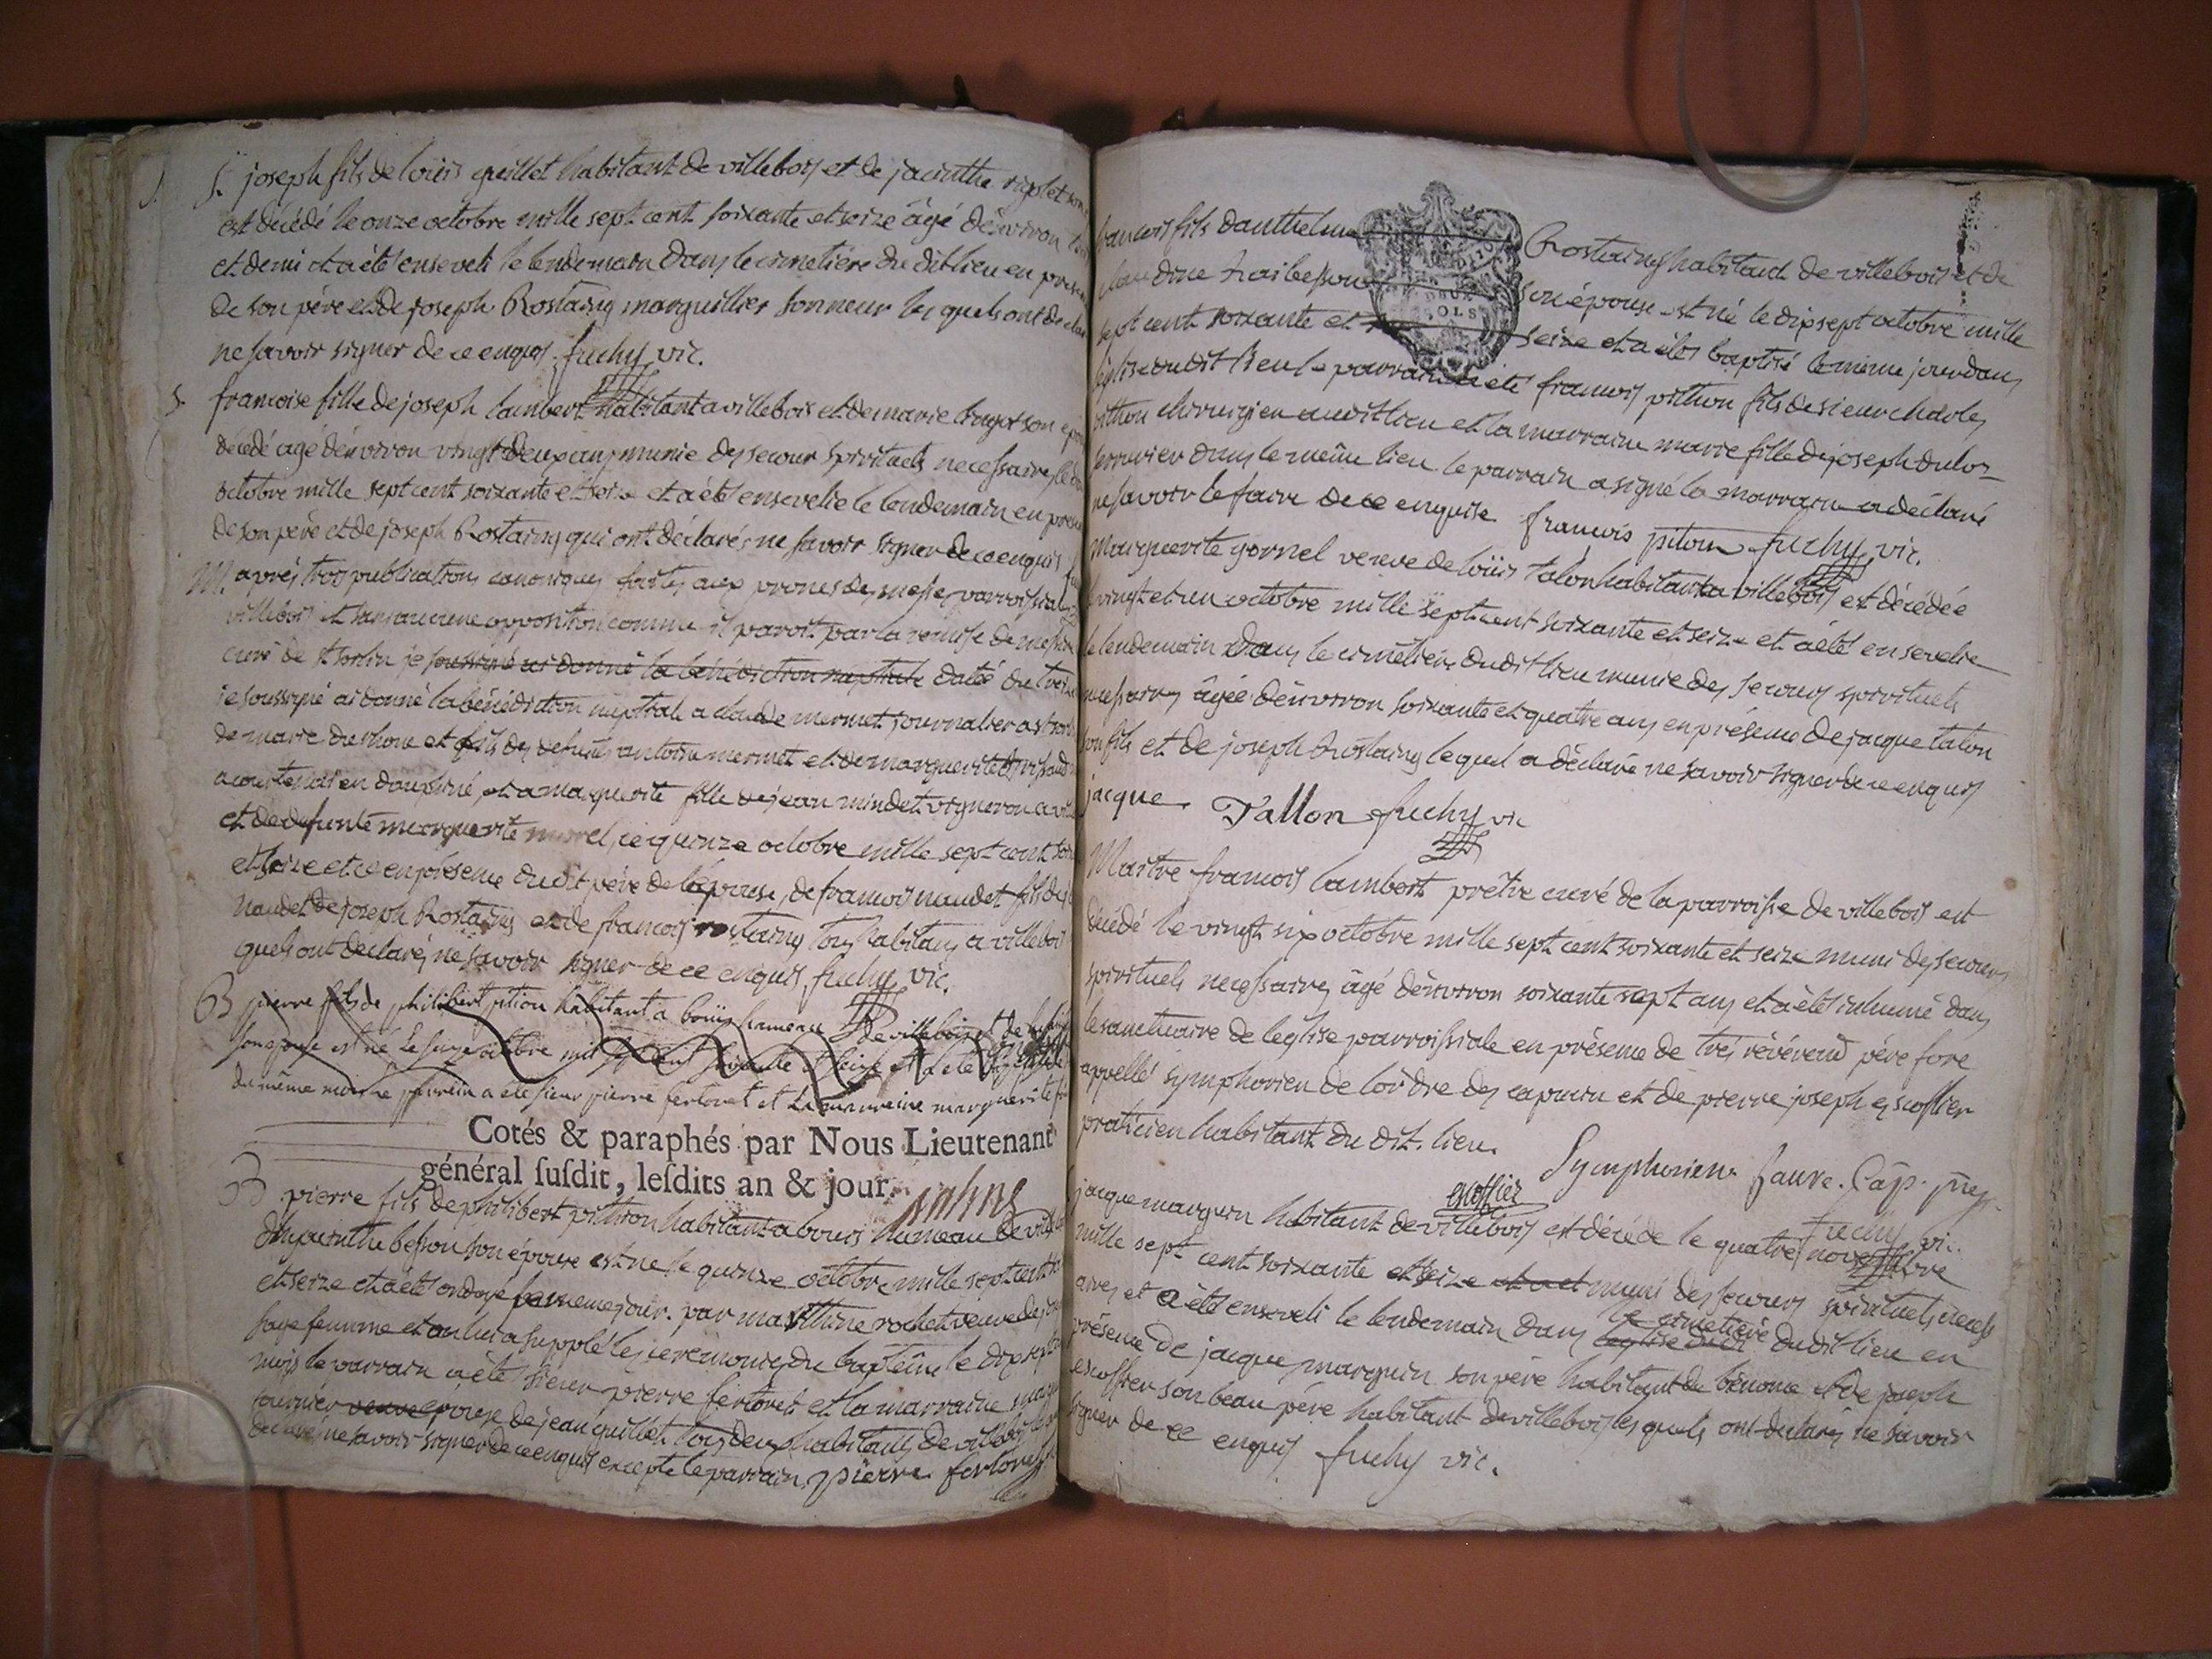 S. joseph fils de loüis quillet habitant de villebois et de jacinthe
est décédé le onze octobre mille sept cent soixante et seize âgé d'environ
et demi et a été enseveli le lendemain dans le cimetière du dit lieu en
de son pére et de joseph Rostaing marguillier sonneur les quels ont
ne savoir signer de ce enquis. fuchy vic.
S. francoise fille de joseph lambert habitant a villebois et de marie son
décédé agé d'environ vingt deux ans munie des secour spirituels necessaires
octobre mille sept cent soixante et seize et a été ensevelie le lendemain en
de son pére et de joseph Rostaing qui ont déclarés ne savoir signer de ce enquis
M. aprés trois publications canoniques faites aux prones des messes
villebois et sans aucune opposition comme il paroit par la remise de
curé de st sorlin je soussigné ai donné la bénédiction nuptiale daté du
je soussigné ai donné la bénédiction nuptiale a claude mermet journalier a
de marie du rhone et fils des defunts antoine mermet et de marguerite
a courtenai en dauphiné, et a marguerite fille de jean mindet vigneron a
et de defunte marguerite morel, ce quinze octobre mille sept cent
et seize et ce en présence du dit pére de l'épouse, de francois naudet fils de
naudet de joseph Rostaing et de francois rostaing tous habitans a villebois
quels ont declarés ne savoir signer de ce enquis. fuchy vic.
B pierre fils de philibert pition habitant a bouis hameau de villebois et de
son epouse est né Le seize octobre mil sept cent soixante et seize et a ete
du même mois le parrein a ete sieur pierre fertoret et La marreine marguerite
Cotés & paraphés par Nous Lieutenant
général susdit, lesdits an & jour.
B pierre fils de philibert pithion habitant a bouis hameau de
d'hyacinthe besson son épouse est né le quinze octobre mille sept cent
et seize et a été ondoyé le meme jour. par mathine rochet veuve de
sage femme et on lui a supplé les ceremonies du baptême le dix sept
mois le parrain a été sieur pierre fertoret et la marraine
fournier veuve épouse de jean quillet tous deux habitants de villebois
declaré ne savoir signer de ce enquis excepté le parrain. pierre fertoret
francois fils d'anthelme Rostaing habitant de villebois et de
claudine son épouse est né le dix sept octobre mille
sept cent soixante et seize et a étés baptisé le même jour dans
l'église du dit lieu le parrain a été francois pithon fils de sieur charles
pithon chirurgien au dit lieu et la marraine marie fille de joseph
serrurier dans le même lieu le parrain a signé la marraine a déclaré
ne savoir le faire de ce enquise francois piton fuchy vic.
Marguerite gornel veuve de loüis talon habitant a villebois est décédée
vingt et un octobre mille sept cent soixante et seize et a été ensevelie
le lendemain dans le cimetière du dit lieu munie des secours spirituels
necessaires âgée d'environ soixante et quatre ans en présence de jacque talon
son fils et de joseph Rostaing lequel a déclaré ne savoir signer de ce enquis
jacque. Tallon fuchy vic
Maitre francois lambert prêtre curé de la parroisse de villebois est
décédé le vingt six octobre mille sept cent soixante et seize muni des secours
spirituels necessaires âgé d'environ soixante sept ans et a été inhumé dans
le sanctuaire de l'eglise parroissiale en présence de trés révérend pére fore
appellé symphorien de lordre des capucin et de pierre joseph escoffier
praticien habitant du dit. lieu. Symphorien faure. Cap.
escoffier fuchy vi.
jacque marguin habitant de villebois est décédé le quatre novembre
mille sept cent soixante et seize et a et muni des secours spirituels
aires et a été enseveli le lendemain dans l'eglise dudi le cimetiére dudit lieu en
présence de jacque marguin son pére habitant de bénonce et de joseph
escoffier son beau pére habitant de villebois les quels ont declarés ne savoir
signer de ce enquis fuchy vic.